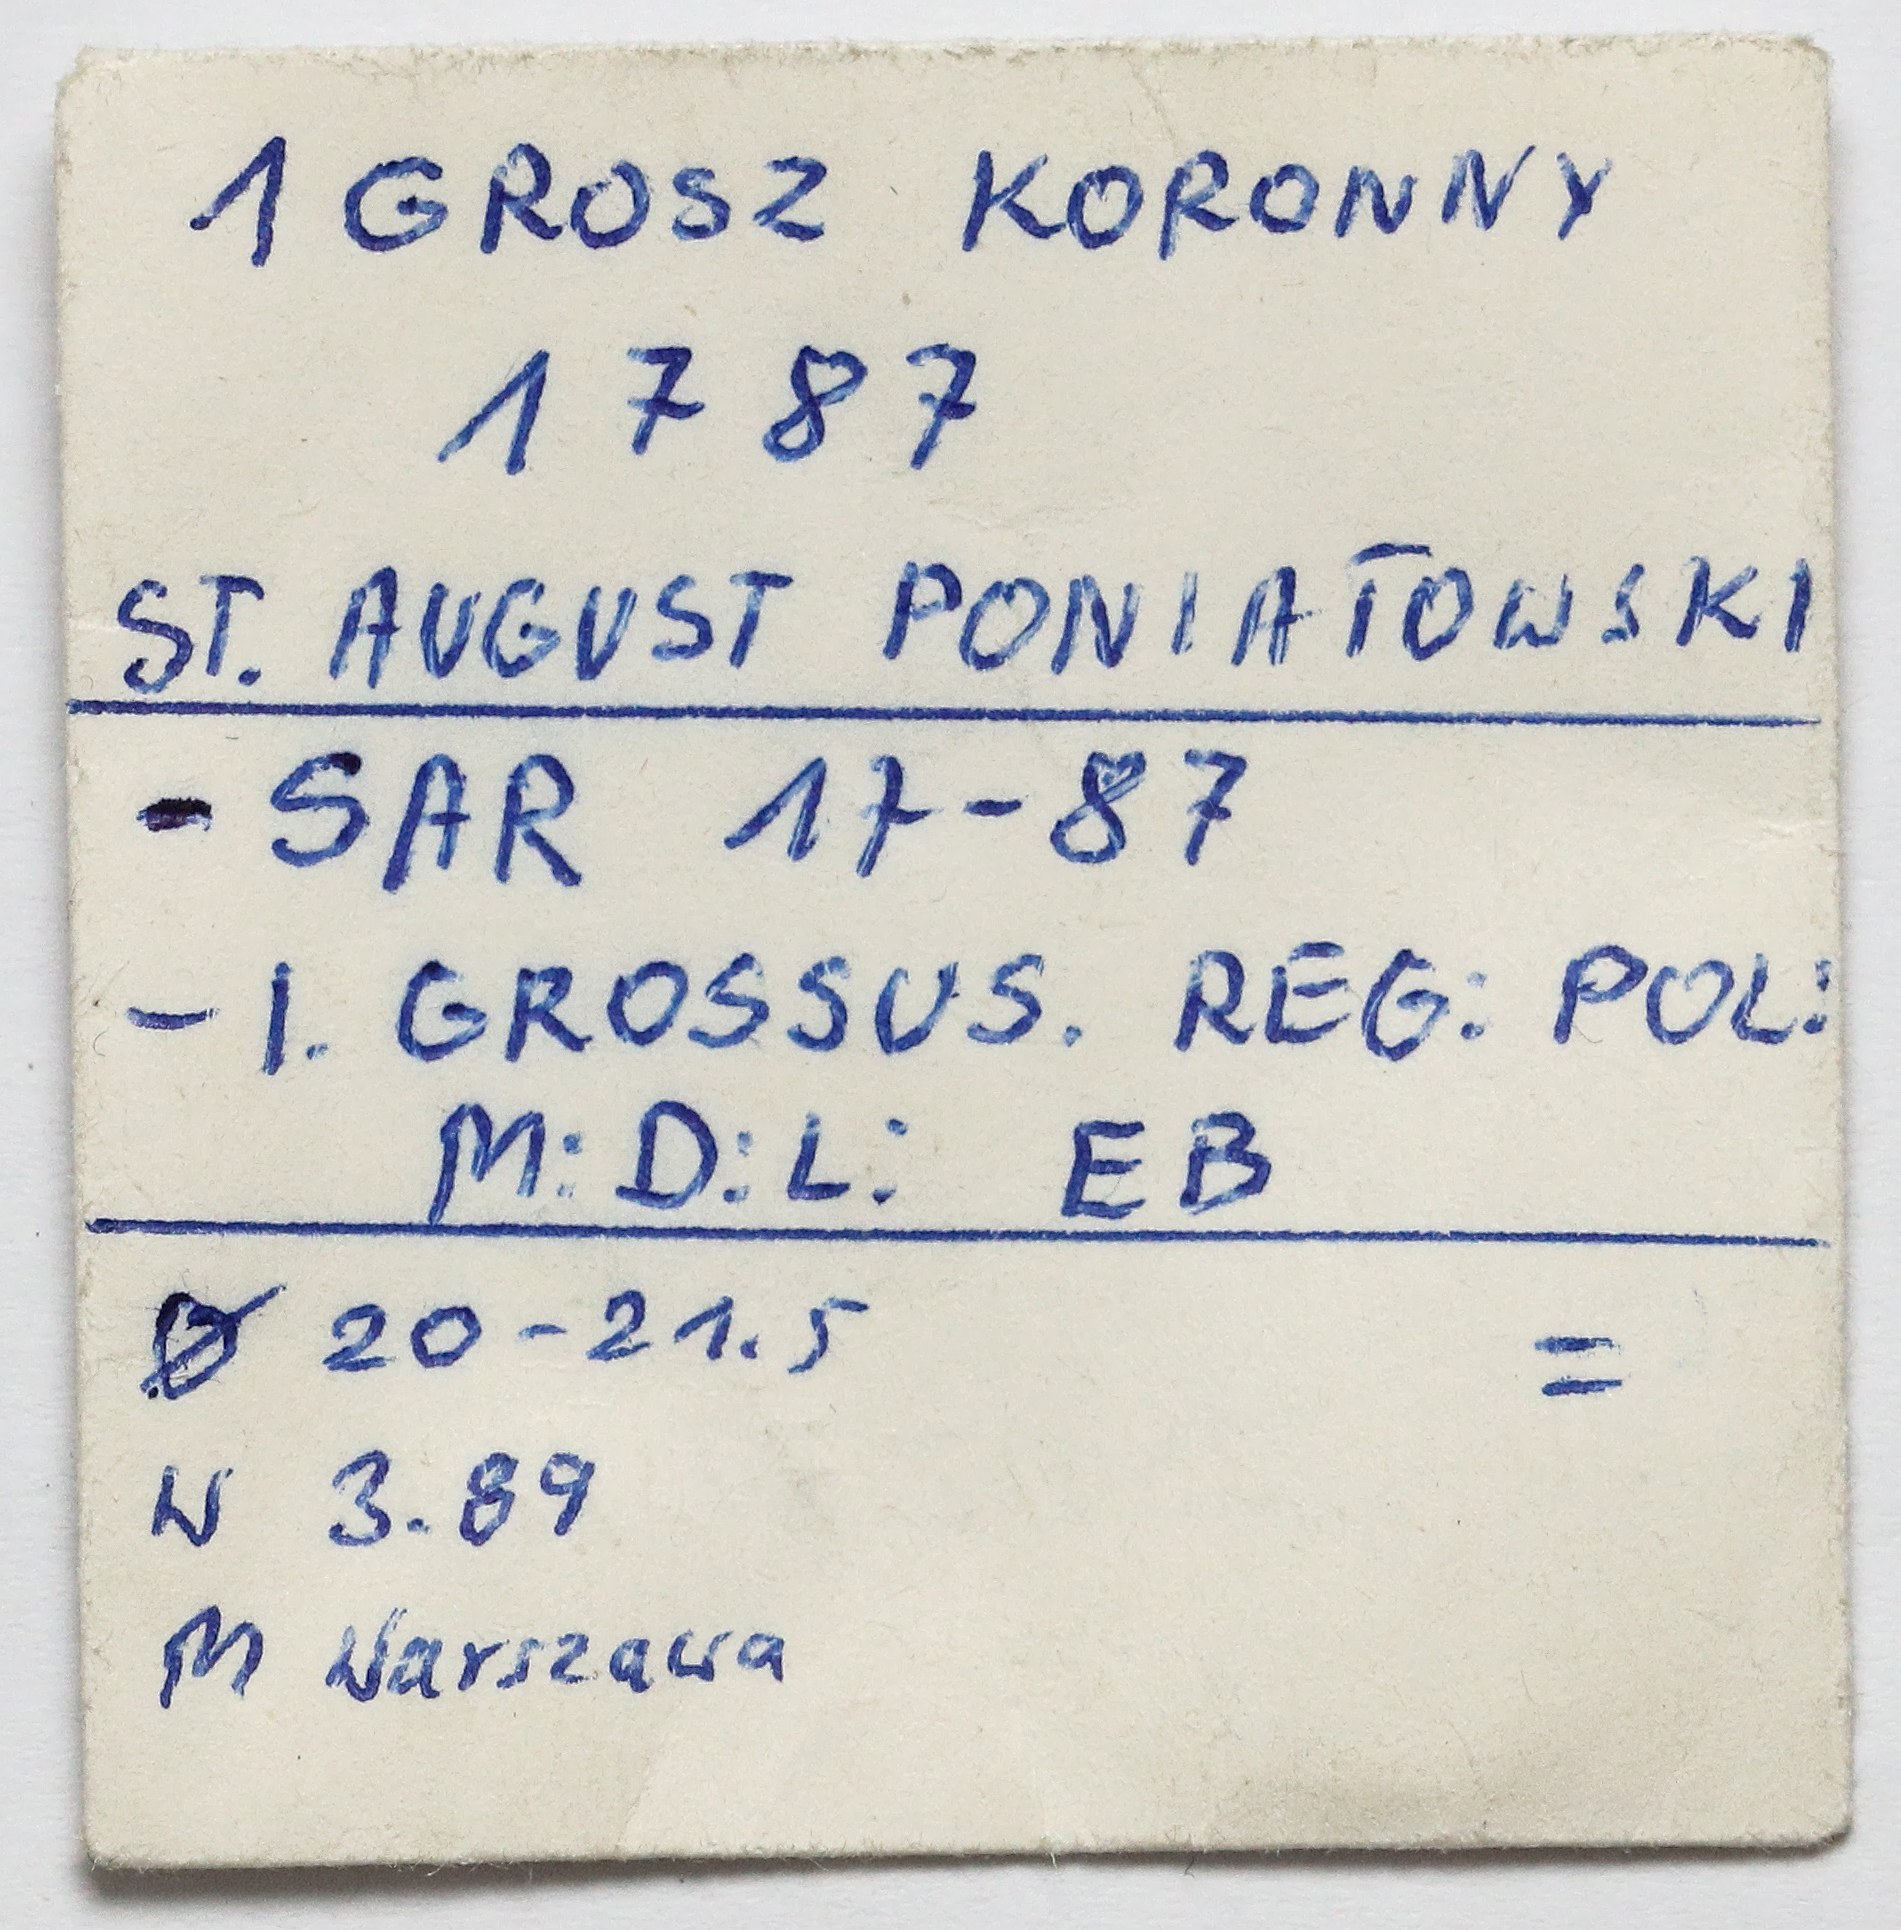 1 GROSZ KORONNY
1787
ST. AUGUST PONIATOWSKI
- SAR 17-87
- 1. GROSSUS. REG: POL:
M: D: L: EB
Ø 20-21.5 =
W 3.89
M Warszawa